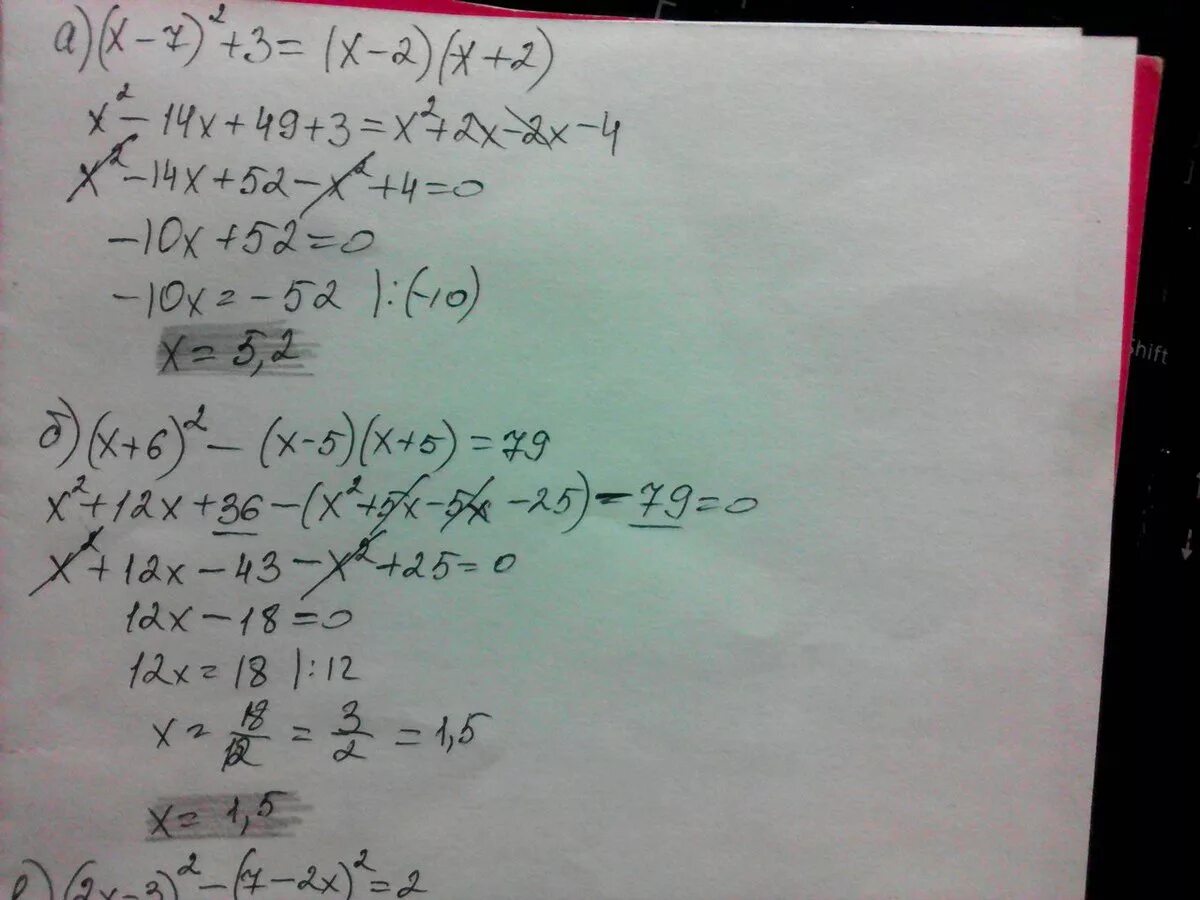 а) (x-7)² + 3 = (x-2)(x+2)
x² - 14x + 49 + 3 = x² + 2x - 2x - 4
x² - 14x + 52 - x² + 4 = 0
-10x + 52 = 0
-10x = -52 |:(-10)
x = 5,2
б) (x+6)² - (x-5)(x+5) = 79
x² + 12x + 36 - (x² + 5x - 5x - 25) - 79 = 0
x² + 12x - 43 - x² + 25 = 0
12x - 18 = 0
12x = 18 |:12
x = 18/12 = 3/2 = 1,5
x = 1,5
(2x-3)² - (7-2x)² = 2
Shift